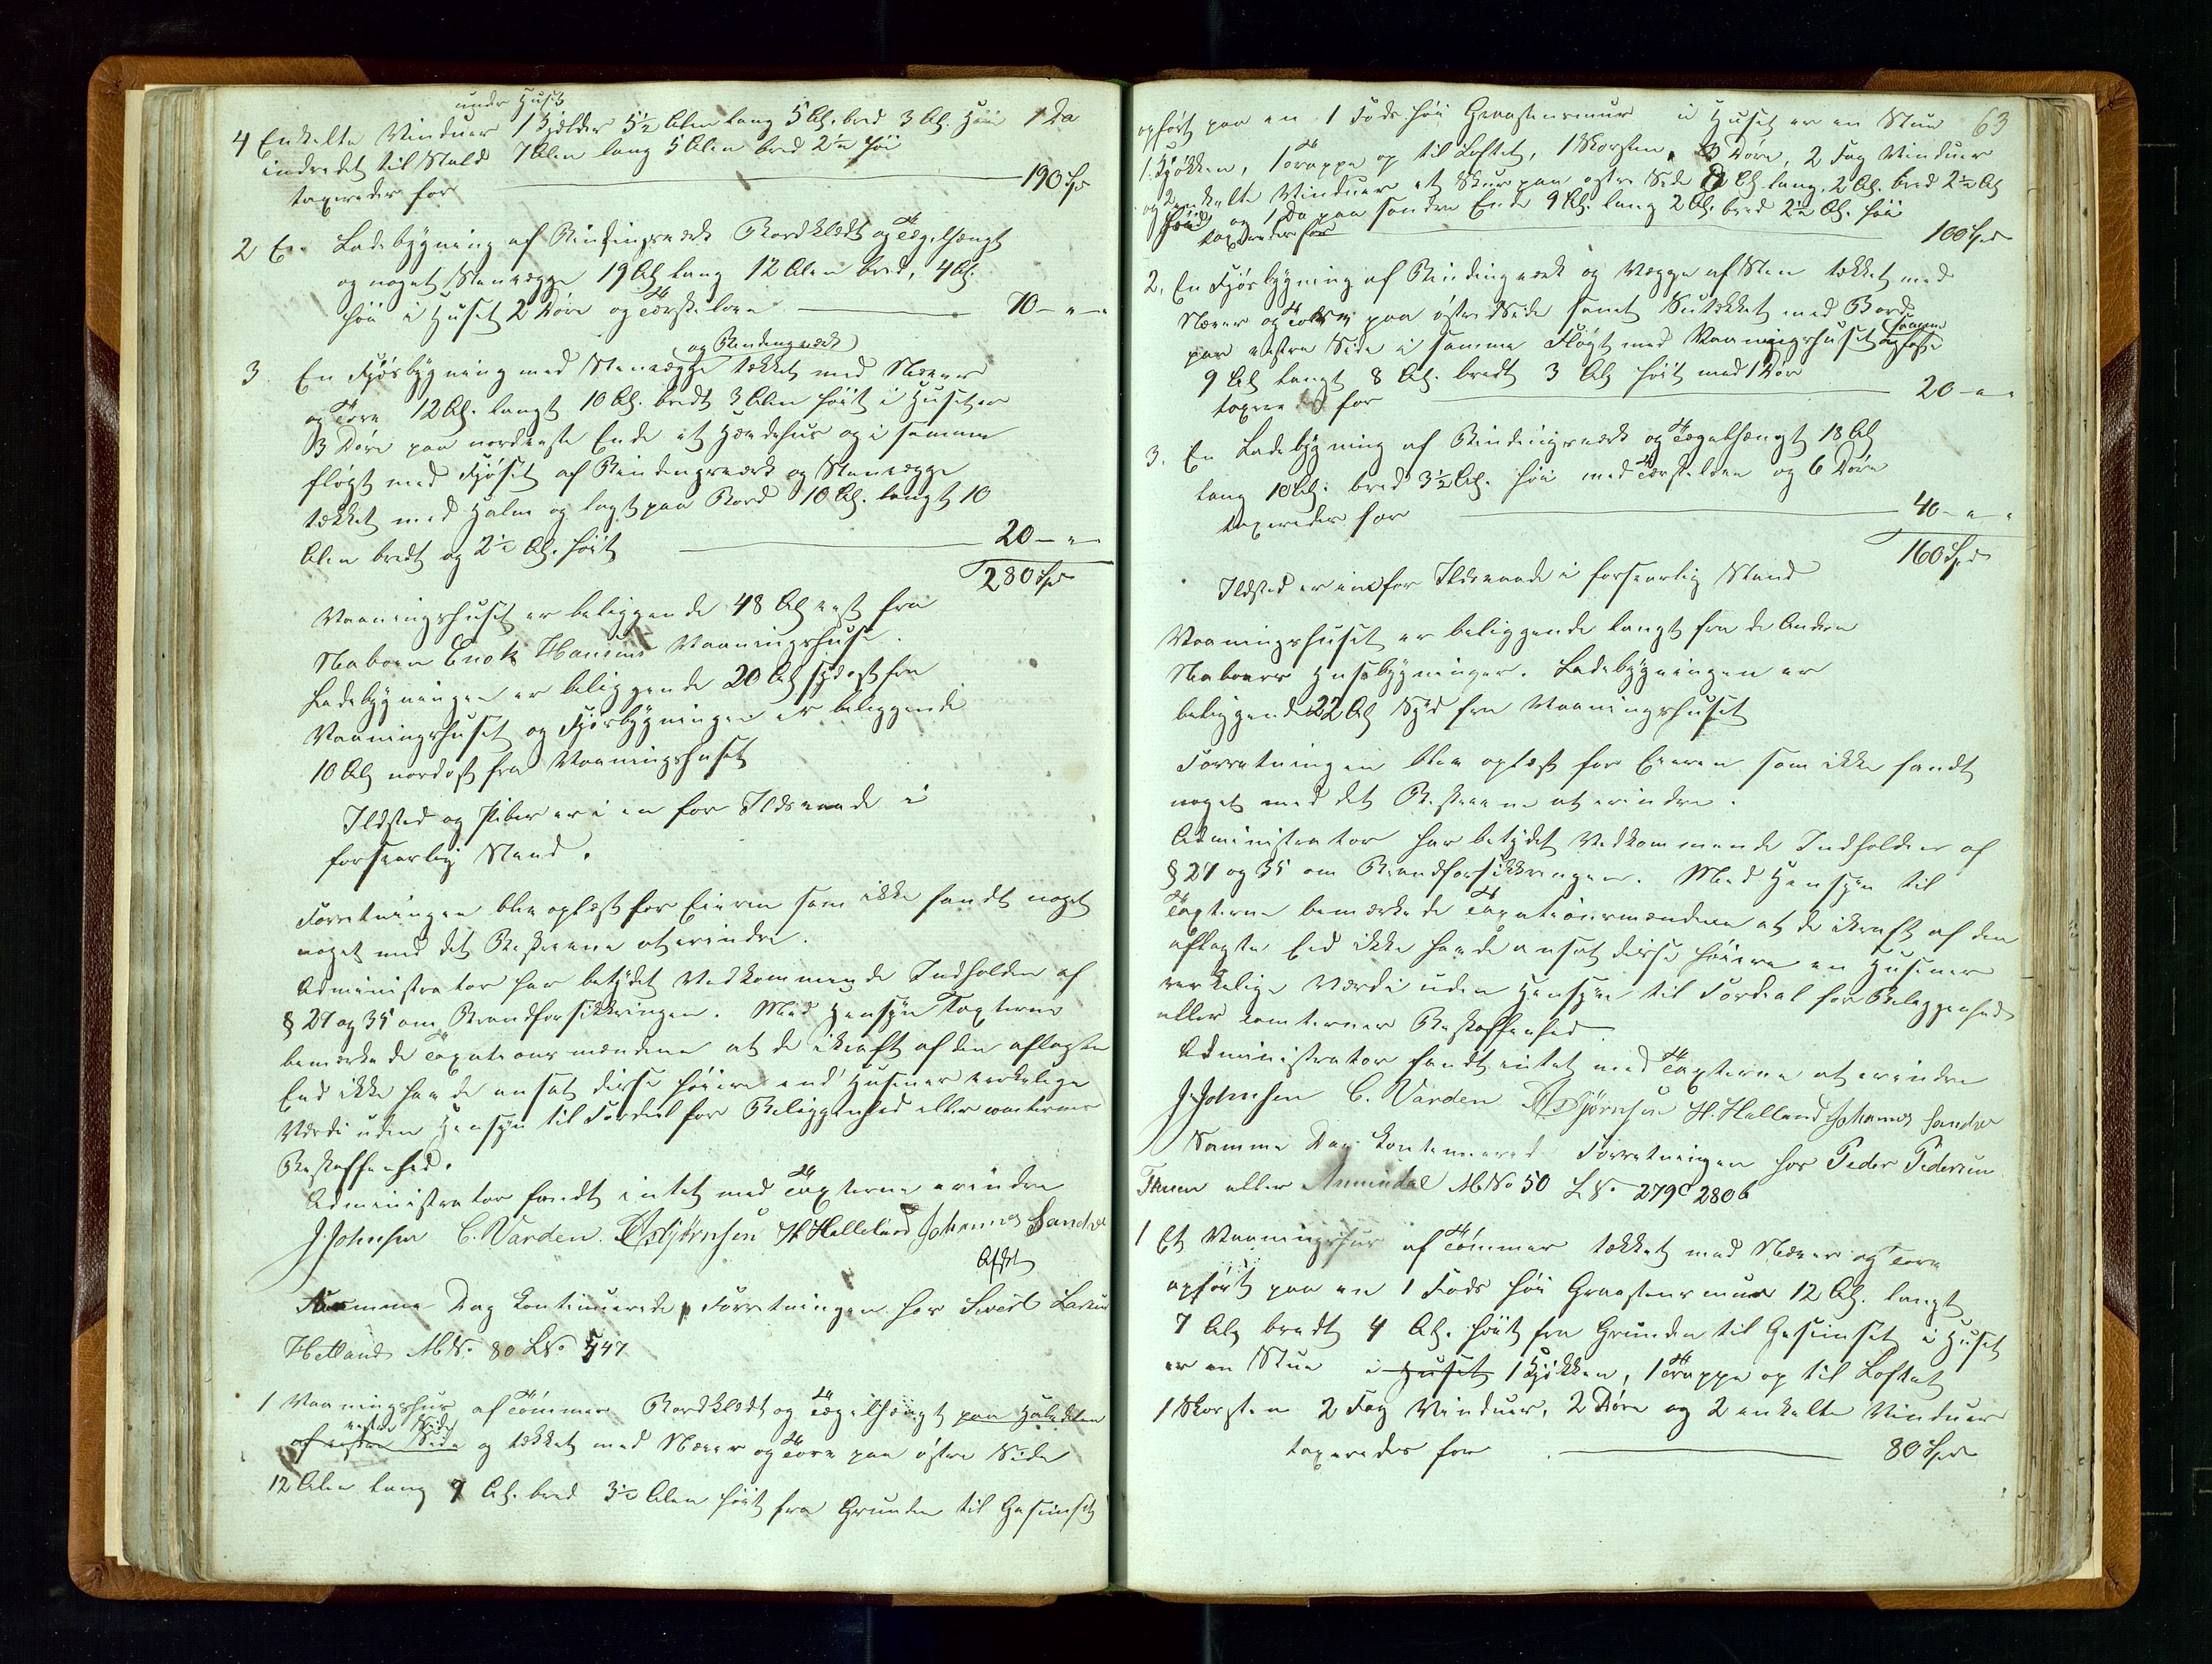 under Huset
4 Enkelte Vinduer 1 Kjelder 5½ Alen lang 5 Al. bred 3 Al. Høi 1 Do
indredet til Stald 7 Alen lang 5 Alen bred 2½ høi
taxeredes for 190 Spd
2 En Ladebygning af Bindingsværk Bordklædt og Tægelhængt
og noget Stenvægge 19 Al lang 12 Alen bred, 4 Al.
høi i Huset 2 Døre og Tærskeloe 70 - " - "
(og Bindingsværk)
3. En Fjøsbygning med Stenvægge tækket med Næver
og Törv 12 Al. langt 10 Al. bredt 3 Alen høit i Huset er
3 Døre paa nordveste Ende et Hændehus og i samme
fløgt med Fjøset af Bindingsværk og Stenvægge
tækket med Halm og lagt paa Bord 10 Al. langt 10
Alen bredt og 2½ Al. høit 20 - " -
280 Spd
Vaaningshuset er beliggende 48 Al vest fra
Naboen Enok Hansens Vaaningshuse.
Ladebygningen er beliggende 20 Al sydost fra
Vaaningshuset og Fjøsbygningen er beliggende
10 Al nordost fra Vaaningshuset
Ildsted og Piber er i en for Ildsvaade i
forsvarlig Stand.
Forretningen blev oplæst for Eieren som ikke fandt noget
noget med det Beskrevne at erindre.
Administrator har betydet Vedkommende Indholden af
§ 27 og 35 om Brandforsikkringen. Med Hensyn Taxterne
bemærkede Taxationsmændene at de ikraft af den aflagte
Eed ikke havde ansat disse høiere end Husenes virkelige
Værdi uden Hensyn til Fordeel for Beliggenhed eller Tomternes
Beskaffenhed.
Administrator fandt intet med Taxterne erindre
J. Johnsen C. Varden. Asbjørnsen H. Helleland Johannes Sandve
Afskr
Samme Dag kontinuerede Forretningen hos Sivert Larsen
Hetland M No. 80 L No. 547
1 Vaaningshus af Tömmer Bordklædt og Tægelhængt paa Halvdelen
vestre Side
af vestre Side og tækket med Næver og Törv paa østre Side
12 Alen lang 7 Al. bred 3½ Alen høit fra Grunden til Gesimset
63
opført paa en 1 Fods høi Graastensmuur i Huset er en Stue
1 Kjøkken, 1 Trappe op til Loftet, 1 Skorsten, 3 Døre, 2 Fag Vinduer
og 2 enkelte Vinduer et Skur paa østre Side 12 Al lang, 2 Al. bred 2½ Al
høid og 1 Do paa søndre Ende 9 Al. lang 2 Al. bred 2½ Al. høi
taxeredes for 100 Spd
2. En Fjøsbygning af Bindingsværk og Vægge af Sten tækket med
Næver og Torv paa østre Side samt Sutækket med Bord
paa vestre Side i samme Fløgt med Vaaningshuset
9 Al langt 8 Al. bredt 3 Al høit med 1 Dør
taxeredes for 20 - " "
3. En Ladebygning af Bindingsværk og Tægelhængt 18 Al
lang 10 Al. bred 3½ Al. høi med Tærskeloe og 6 Døre
taxeredes for 40 - " "
160 Spd
Ildsted er i en for Ildsvaade i forsvarlig Stand
Vaaningshuset er beliggende langt fra de Andre
Naboers Husebygninger. Ladebygningen er
beliggende 22 Al Syd fra Vaaningshuset
Forretningen blev oplæst for Eieren som ikke fandt
noget med det Beskrevne at erindre.
Administrator har betydet Vedkommende Indholden af
§ 27 og 35 om Brandforsikkringen. Med Hensyn til
Taxterne bemærkede Taxationsmændene at de ikraft af den
aflagte Eed ikke havde ansat disse høiere en Husenes
verkelige Værdi uden Hensyn til Fordeel for Beliggenhed
eller Tomternes Beskaffenhed
Administrator fandt intet med Taxterne at erindre
J. Johnsen C. Varden Asbjørnsen H. Helleland Johannes Sandve
Samme Dag kontinuered Forretningen hos Peder Pedersen
Tuen eller Ammendal M No 50 L No. 279c 280b
1 Et Vaaningshus af Tömmer tækket med Næver og Torv
opført paa en 1 Fods høi Graastensmuur 12 Al. langt
7 Al bredt 4 Al. høit fra Grunden til Gesimset i Huset
er en Stue i Huset 1 Kjøkken, 1 Trappe op til Loftet
1 Skorsten 2 Fag Vinduer, 2 Døre og 2 enkelte Vinduer
taxeredes for 80 Spd